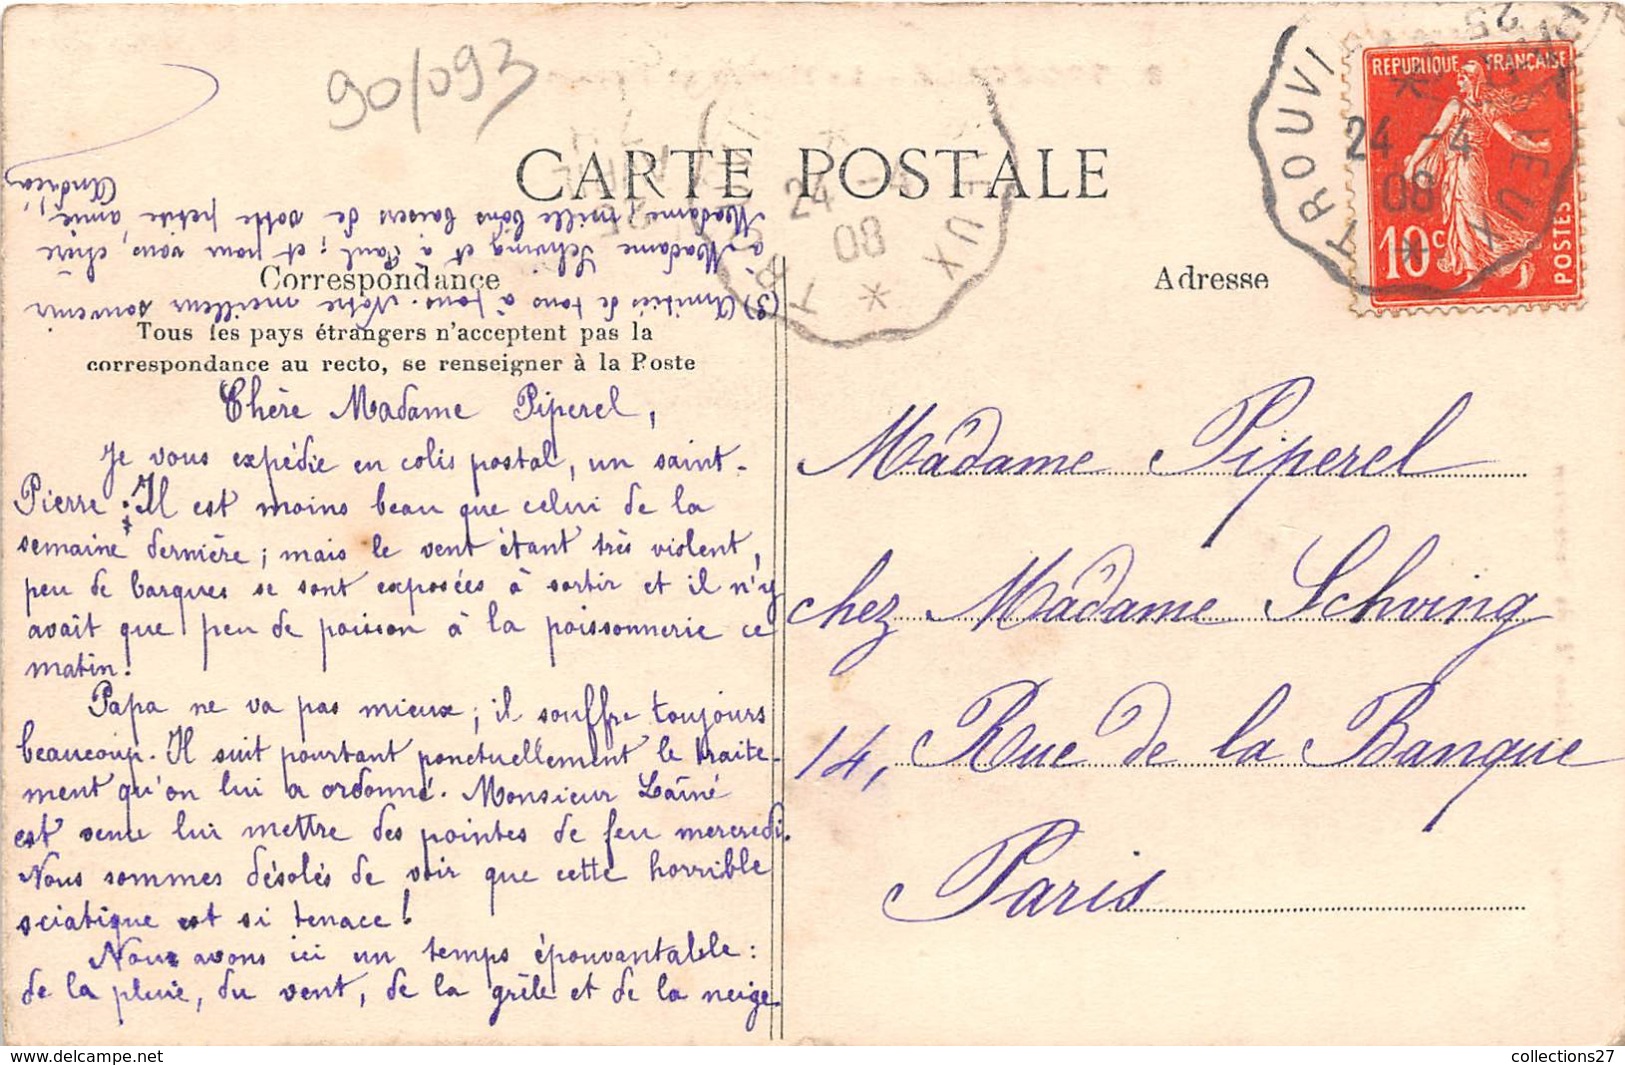 90/093
CARTE POSTALE
Correspondance
Adresse
Tous les pays étrangers n'acceptent pas la
correspondance au recto, se renseigner à la Poste
REPUBLIQUE FRANÇAISE
10c
POSTES
TROUVI
24 -4
08
*
24 -
08
*
UX
Chère Madame Piperel,
Je vous expédie en colis postal, un saint-
Pierre. Il est moins beau que celui de la
semaine dernière ; mais le vent étant très violent,
peu de barques se sont exposées à sortir et il n'y
avait que peu de poisson à la poissonnerie ce
matin.
Papa ne va pas mieux ; il souffre toujours
beaucoup. Il suit pourtant ponctuellement le traite-
ment qu'on lui a ordonné. Monsieur Lainé
est venu lui mettre des pointes de feu mercredi.
Nous sommes désolés de voir que cette horrible
sciatique est si tenace !
Nous avons ici un temps épouvantable :
de la pluie, du vent, de la grêle et de la neige.
(3) Amitiés de tous à tous. Notre meilleur souvenir
à Madame Schving et à Paul ; et pour vous, chère
Madame, mille bons baisers de votre petite amie,
Andréa
Madame Piperel
chez Madame Schving
14, Rue de la Banque
Paris
collections27